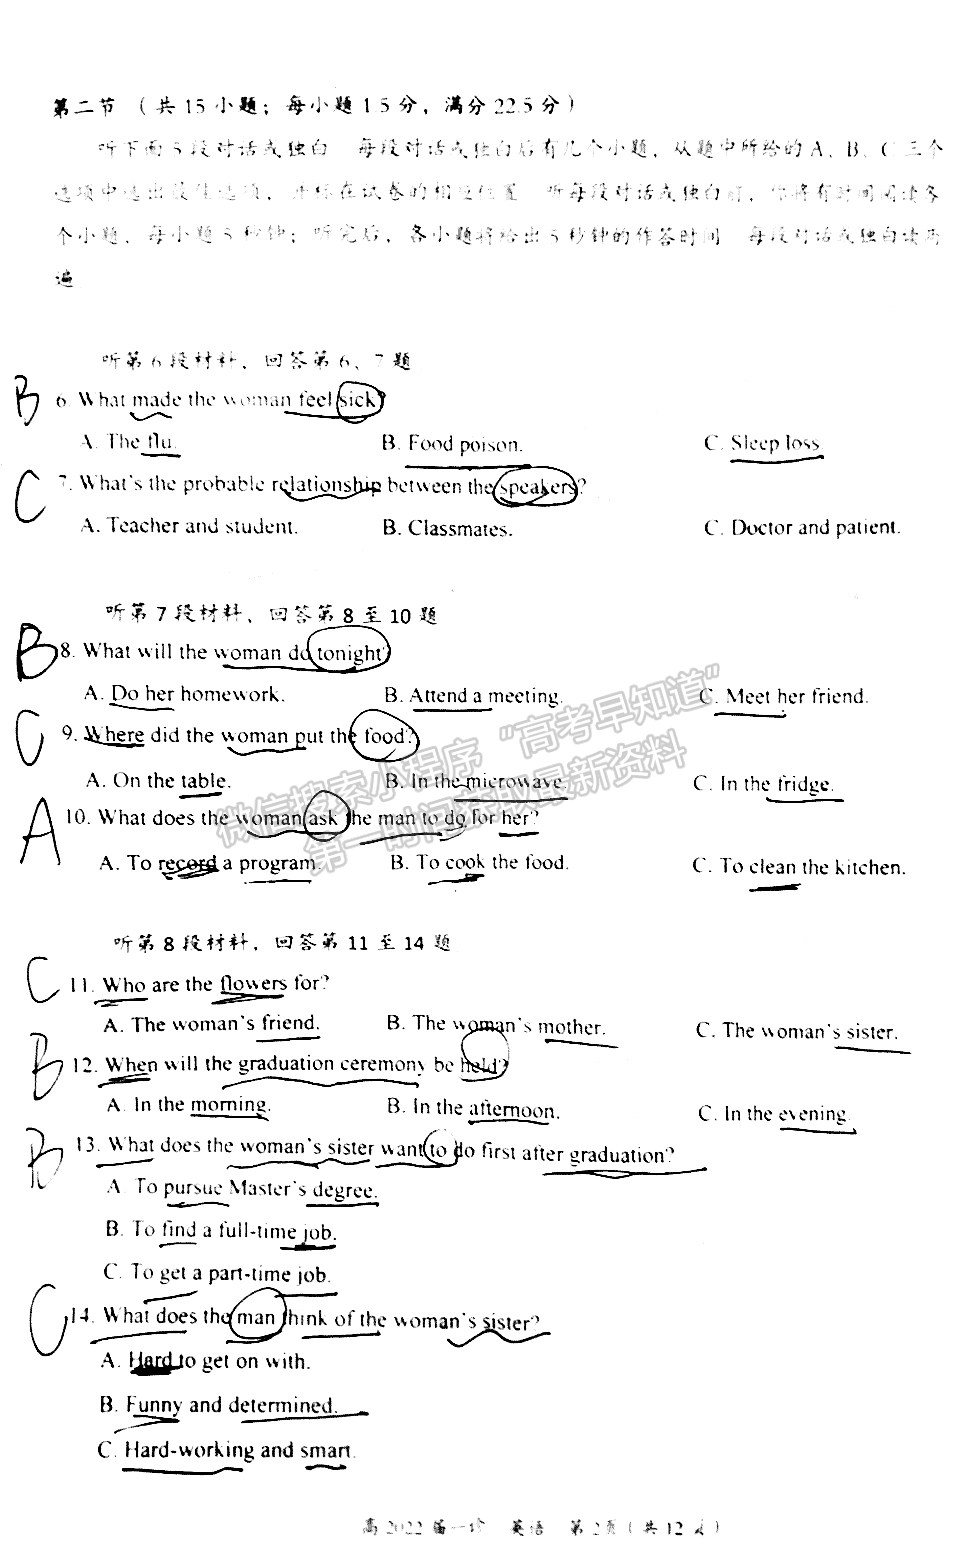 第二节 （共15小题；每小题1.5分，满分22.5分）
听下面5段对话或独白 每段对话或独白后有几个小题，从题中所给的A、B、C三个
选项中选出最佳选项，并标在试卷的相应位置 听每段对话或独白前，你将有时间阅读各
个小题，每小题5秒钟；听完后，各小题将给出5秒钟的作答时间 每段对话或独白读两
遍
听第6段材料，回答第6、7题
B 6. What made the woman feel sick?
A. The flu. B. Food poison. C. Sleep loss
C 7. What's the probable relationship between the speakers?
A. Teacher and student. B. Classmates. C. Doctor and patient.
听第7段材料，回答第8至10题
B 8. What will the woman do tonight?
A. Do her homework. B. Attend a meeting. C. Meet her friend.
C 9. Where did the woman put the food?
A. On the table. B. In the microwave. C. In the fridge.
微信搜索小程序“高考早知道”
第一时间获取最新资料
A 10. What does the woman ask the man to do for her?
A. To record a program. B. To cook the food. C. To clean the kitchen.
听第8段材料，回答第11至14题
C 11. Who are the flowers for?
A. The woman's friend. B. The woman's mother. C. The woman's sister.
B 12. When will the graduation ceremony be held?
A. In the morning. B. In the afternoon. C. In the evening.
B 13. What does the woman's sister want to do first after graduation?
A. To pursue Master's degree.
B. To find a full-time job.
C. To get a part-time job.
C 14. What does the man think of the woman's sister?
A. Hard to get on with.
B. Funny and determined.
C. Hard-working and smart.
高2022届一诊 英语 第2页（共12页）